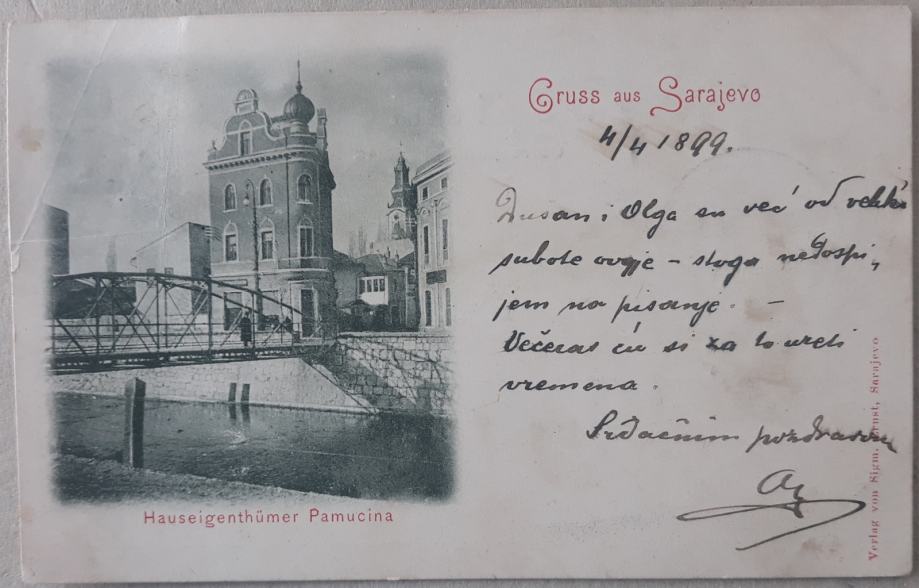 Gruss aus Sarajevo
4/4 1899.
Dusan i Olga su već od velike
subote ovdje – stoga nedospi,
jem na pisanje. –
Večeras ću si za to uzeti
vremena.
Srdačnim pozdravom
Hauseigenthümer Pamucina
Verlag von Sigm. Ernst, Sarajevo